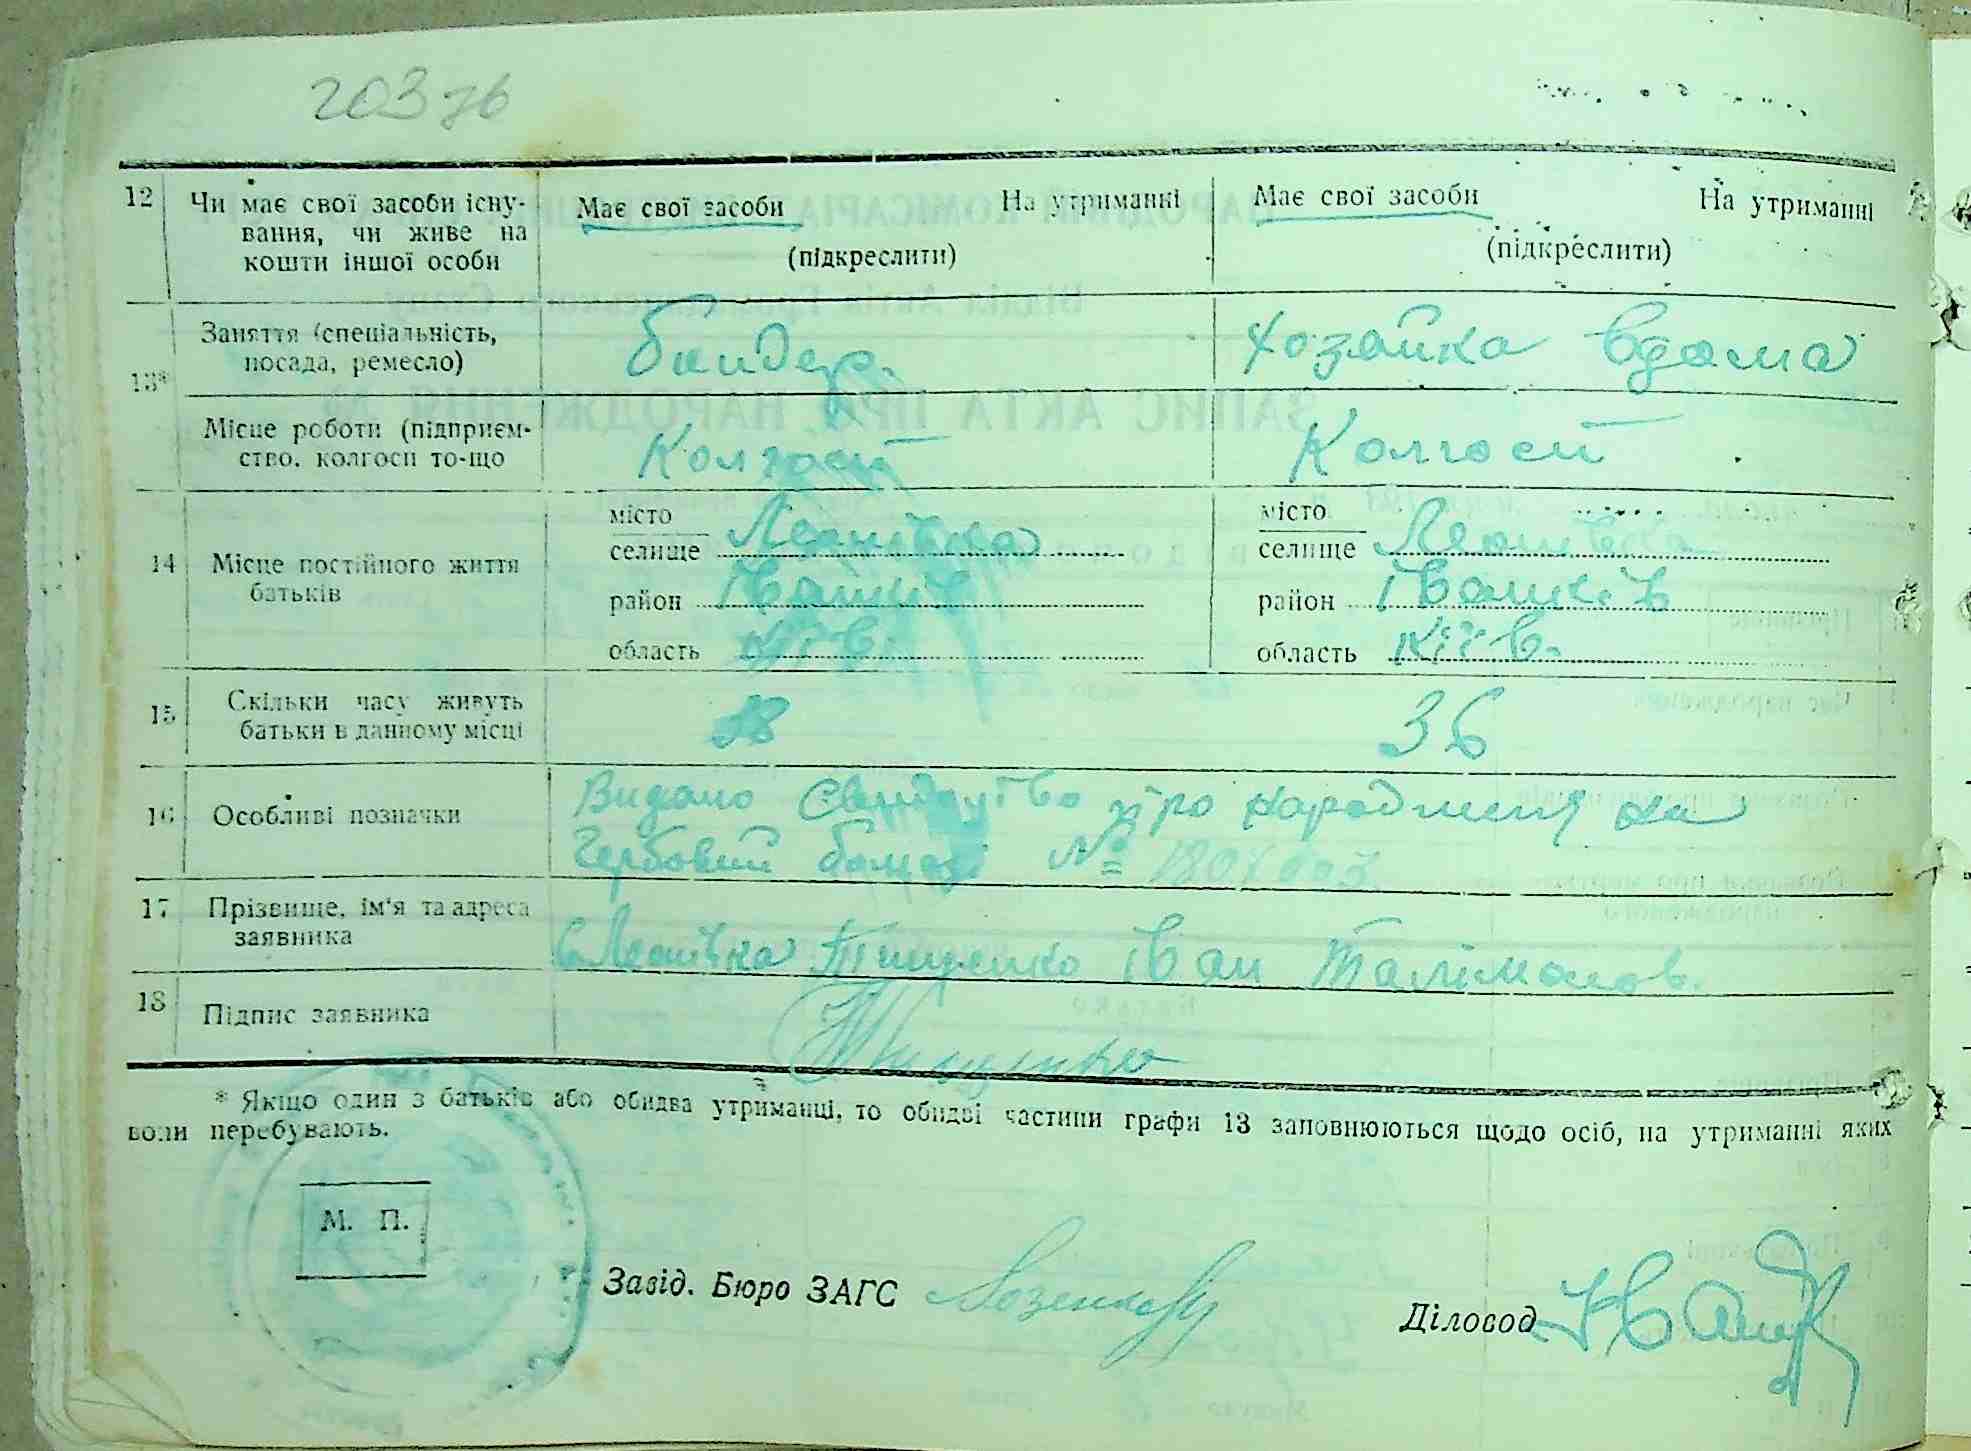 203 зв
12 Чи має свої засоби існу- Має свої засоби На утриманні Має свої засоби На утриманні
вання, чи живе на (підкреслити) (підкреслити)
кошти іншої особи
13* Заняття (спеціальність, хозяйка вдома
посада, ремесло)
Місце роботи (підприєм- Колгосп Колгосп
ство, колгосп то-що
14 Місце постійного життя батьків
місто
селище Леонівка
район Іванків
область Київ.
місто
селище Леонівка
район Іванків
область Київ.
15 Скільки часу живуть 38 36
батьки в данному місці
16 Особливі позначки Видано свидоцтво про народження на
Гербовий бомазі №
17 Прізвище, ім'я та адреса
заявника с Леонівка Тищенко Іван Талімонов.
18 Підпис заявника Тищенко
* Якщо один з батьків або обидва утриманці, то обидві частини графи 13 заповнюються щодо осіб, на утриманні яких
воли перебувають.
М. П.
Завід. Бюро ЗАГС
Діловод